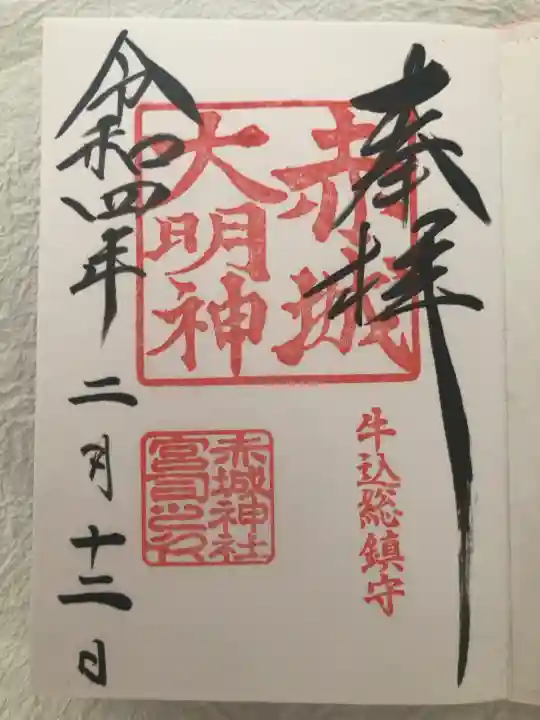 奉拝
牛込総鎮守
赤城
大明神
赤城神社
宮司之印
令和四年二月十二日